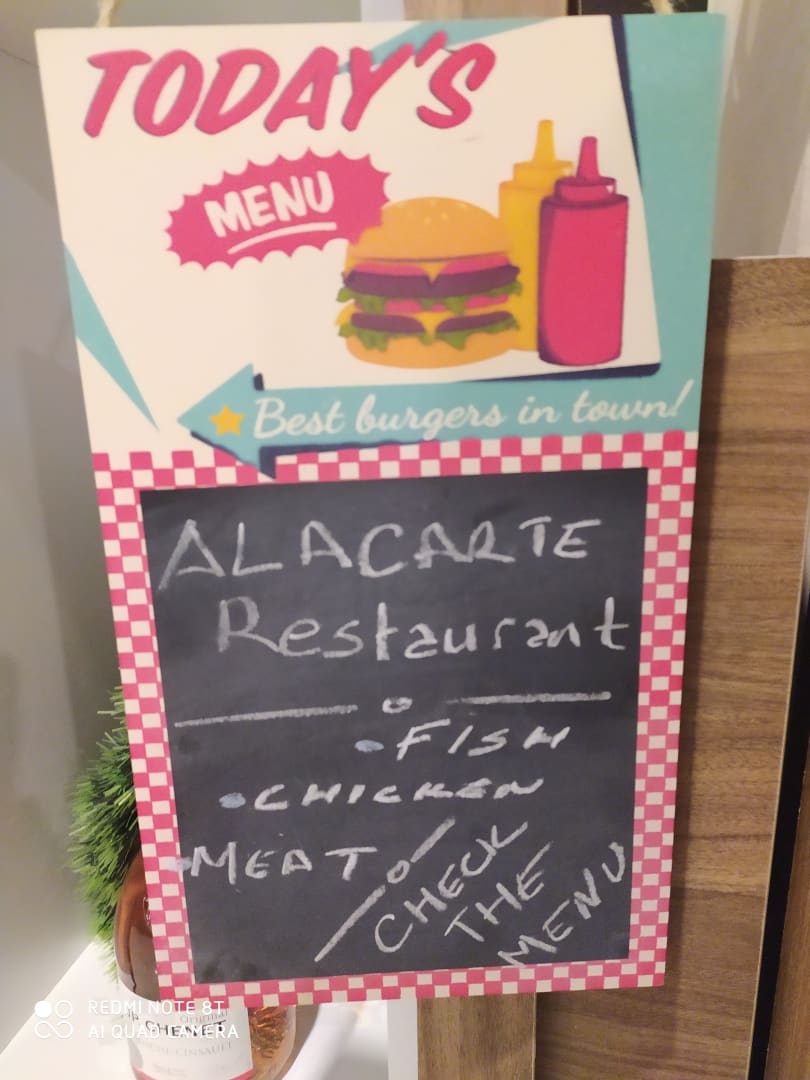 TODAY'S
MENU
Best burgers in town!
ALACARTE
Restaurant
FISH
CHICKEN
MEAT
CHECK
THE
MENU
REDMI NOTE 8T
AI QUAD CAMERA
Original
CHENET